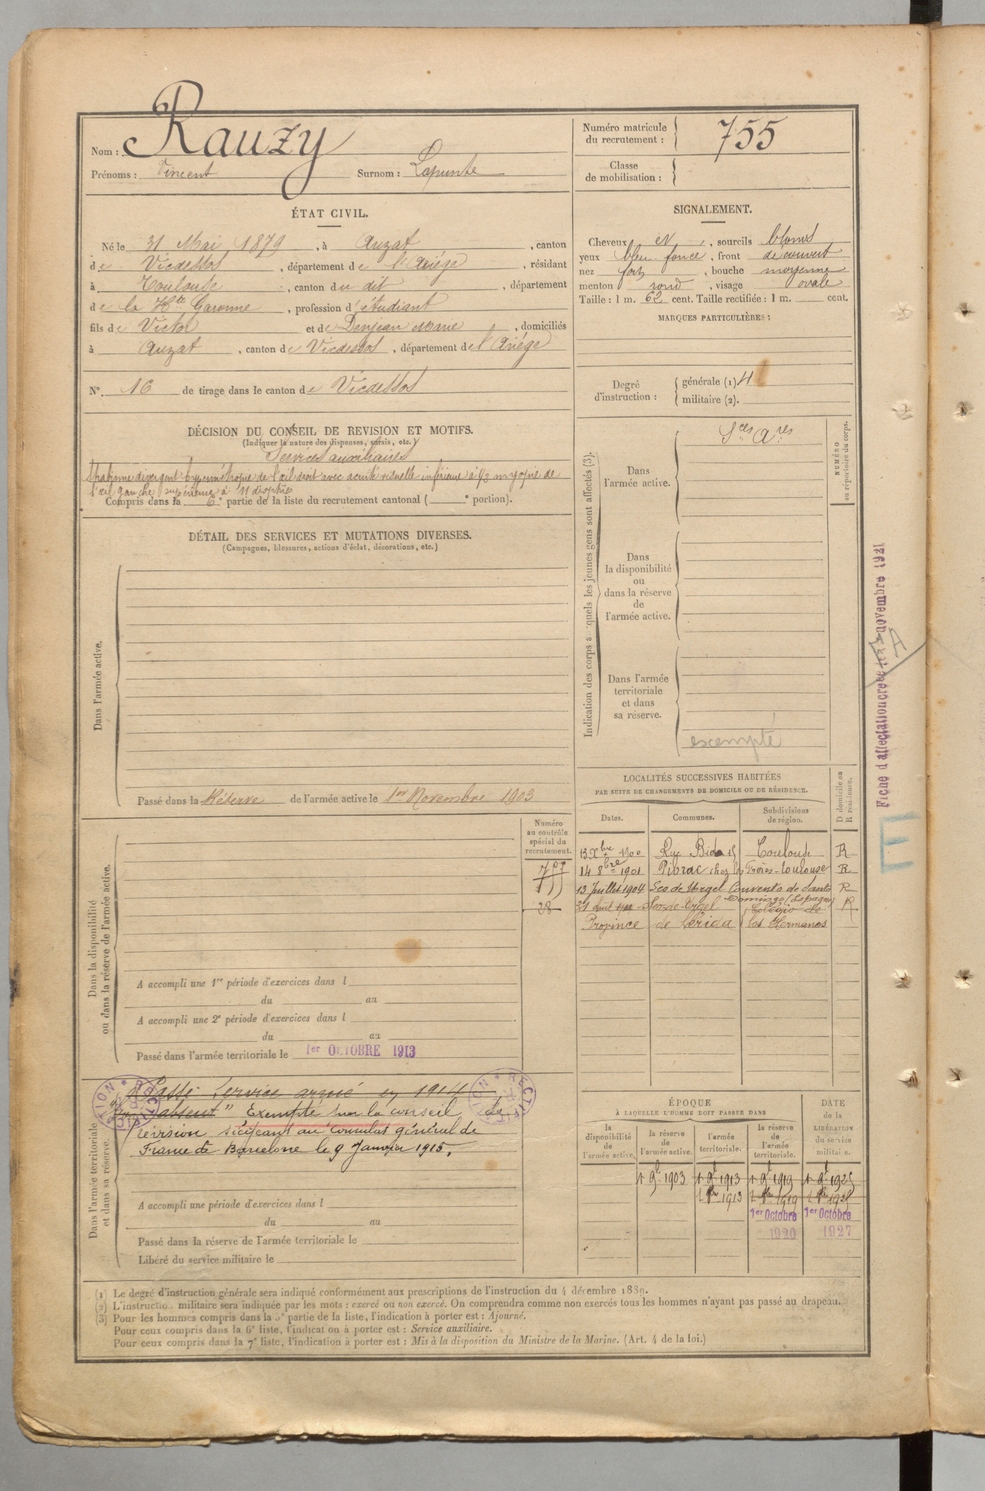 Nom : Rauzy
Prénoms : Vincent Surnom : Lapunte
Numéro matricule du recrutement : 755
Classe de mobilisation :
ÉTAT CIVIL.
Né le 31 Mai 1879, à Auzat, canton
de Vicdessos, département de l'Ariège, résidant
à Toulouse, canton du dit, département
de la Hte Garonne, profession d'étudiant
fils de Victor et de Denjean Marie, domiciliés
à Auzat, canton de Vicdessos, département de l'Ariège
N° 16 de tirage dans le canton de Vicdessos
SIGNALEMENT.
Cheveux N, sourcils blonds
yeux bleu foncé, front découvert
nez fort, bouche moyenne
menton rond, visage ovale
Taille : 1 m. 62 cent. Taille rectifiée : 1 m. cent.
MARQUES PARTICULIÈRES :
Degré d'instruction : générale (1) 4
militaire (2).
DÉCISION DU CONSEIL DE REVISION ET MOTIFS.
(Indiquer la nature des dispenses, sursis, etc.)
Services auxiliaires
Strabisme divergent hypermétropie de l'œil droit avec acuité visuelle inférieure à 1/3 myopie de
l'œil gauche supérieure à 11 dioptries
Compris dans la 6e partie de la liste du recrutement cantonal ( e portion).
DÉTAIL DES SERVICES ET MUTATIONS DIVERSES.
(Campagnes, blessures, actions d'éclat, décorations, etc.)
Dans l'armée active.
Passé dans la Réserve de l'armée active le 1er Novembre 1903
Indication des corps auxquels les jeunes gens sont affectés (3).
Dans l'armée active.
Sces Ares
NUMÉRO au répertoire du corps.
Dans la disponibilité ou dans la réserve de l'armée active.
Dans l'armée territoriale et dans sa réserve.
exempté
Fiche d'affectation créée novembre 1921
A
E
LOCALITÉS SUCCESSIVES HABITÉES
PAR SUITE DE CHANGEMENTS DE DOMICILE OU DE RÉSIDENCE.
D domicile ou R résidence.
Dates. Communes. Subdivisions de région.
13 Xbre 1900 Rue Bida 15 Toulouse R
14 8bre 1901 Pibrac chez les Frères Toulouse R
13 Juillet 1904 Seo de Urgel Convento de Santo Domingo (Espagne) R
Seo de Urgel Colegio de R
Province de Lérida los Hermanos
Numéro au contrôle spécial du recrutement.
28
Dans la disponibilité ou dans la réserve de l'armée active.
A accompli une 1re période d'exercices dans l
du au
A accompli une 2e période d'exercices dans l
du au
Passé dans l'armée territoriale le 1er OCTOBRE 1913
Dans l'armée territoriale et dans sa réserve.
Passé Service armé en 1914
absent" Exempté sur le conseil de
révision siégeant au Consulat général de
France de Barcelone le 9 Janvier 1915.
A accompli une période d'exercices dans l
du au
Passé dans la réserve de l'armée territoriale le
Libéré du service militaire le
ÉPOQUE
À LAQUELLE L'HOMME DOIT PASSER DANS
la disponibilité de l'armée active.
la réserve de l'armée active.
l'armée territoriale.
la réserve de l'armée territoriale.
DATE de la LIBÉRATION du service militaire.
1 9bre 1903 1 9bre 1913 1 9bre 1919 1 9bre 1925
1913 1919
1er Octobre 1920 1er Octobre 1927
(1) Le degré d'instruction générale sera indiqué conformément aux prescriptions de l'instruction du 4 décembre 1889.
(2) L'instruction militaire sera indiquée par les mots : exercé ou non exercé. On comprendra comme non exercés tous les hommes n'ayant pas passé au drapeau.
(3) Pour les hommes compris dans la 5e partie de la liste, l'indication à porter est : Ajourné.
Pour ceux compris dans la 6e liste, l'indication à porter est : Service auxiliaire.
Pour ceux compris dans la 7e liste, l'indication à porter est : Mis à la disposition du Ministre de la Marine. (Art. 4 de la loi.)